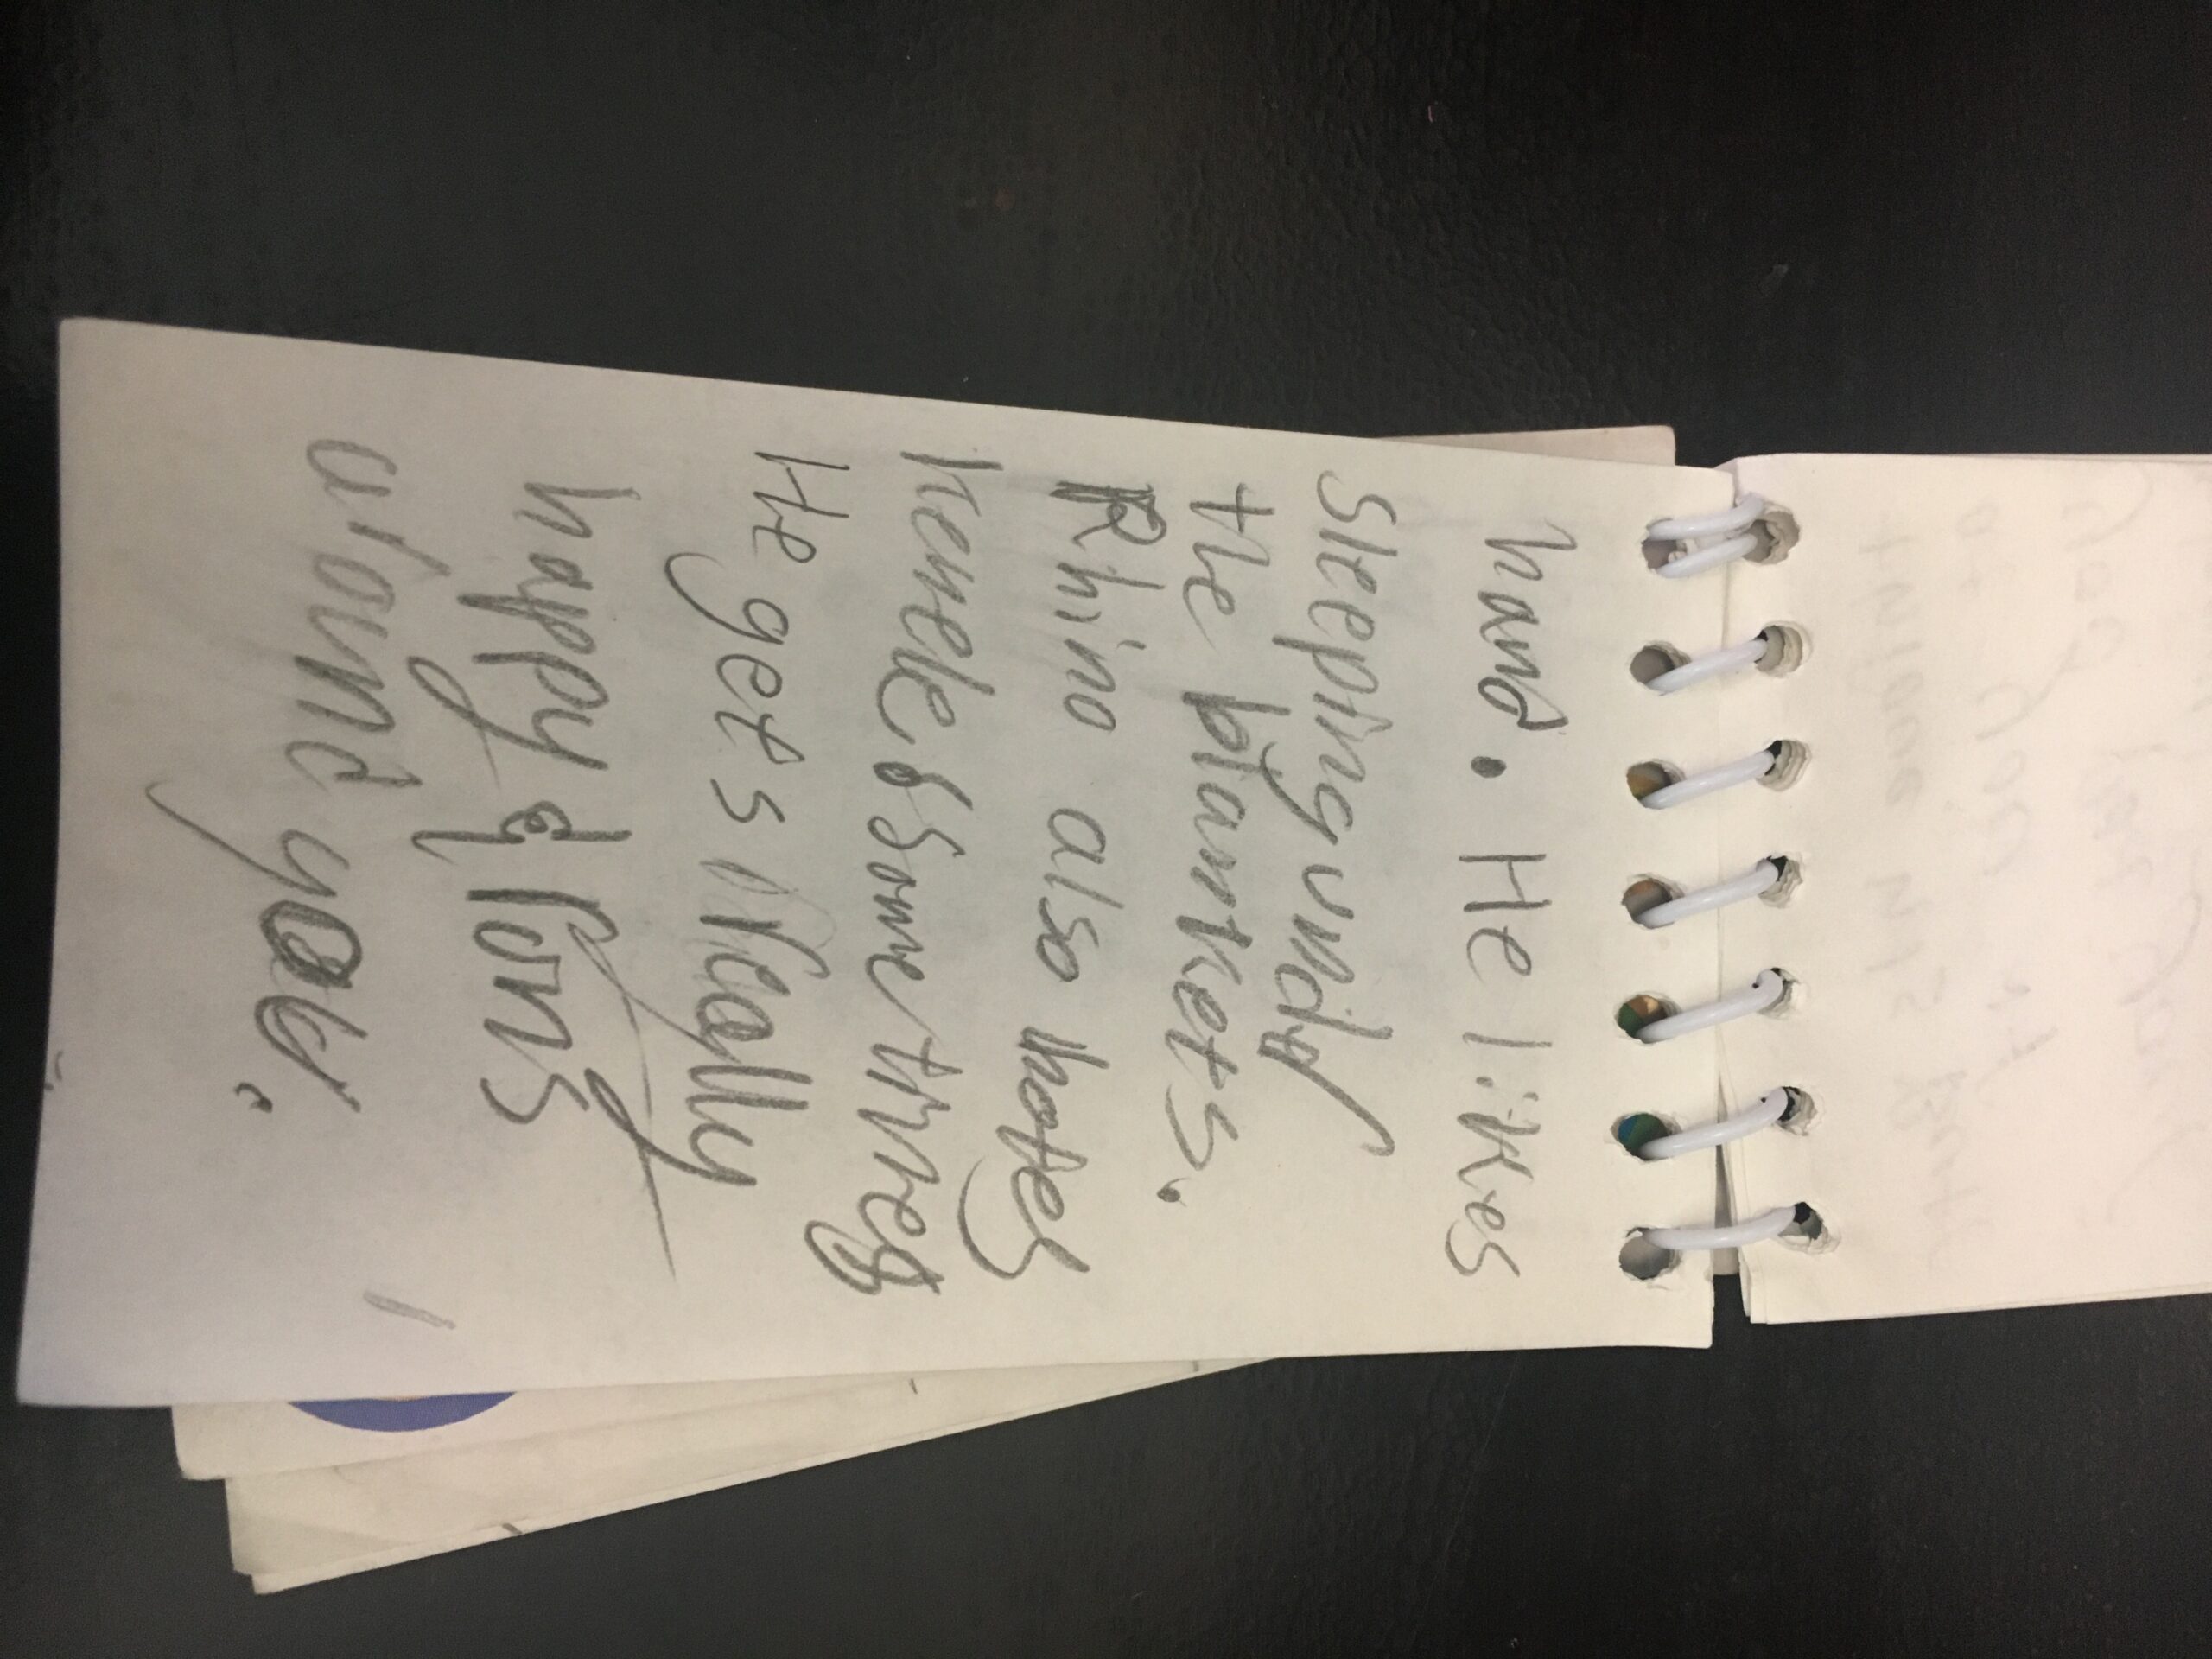 hand. He likes
sleeping und
the blankets.
Rhino also hates
He gets really
happy & runs
around you.